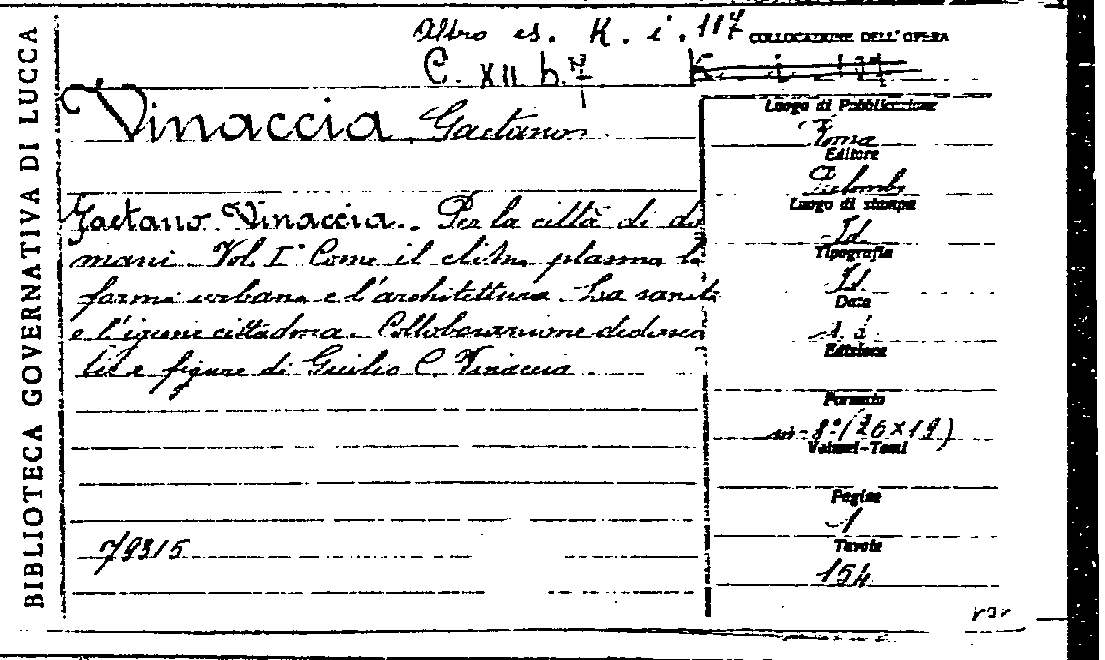 BIBLIOTECA GOVERNATIVA DI LUCCA
Altro es. K. i. 117
COLLOCAZIONE DELL'OPERA
C. XII b. 7
K. i. 117
Vinaccia Gaetano
Gaetano Vinaccia. Per la città di do
mani Vol. I° Come il clima plasma la
forma urbana e l'architettura. La sanità
e l'igiene cittadina. Collaborazione
e figure di Giulio C. Vinaccia
79315
Luogo di Pubblicazione
Roma
Editore
Palombi
Luogo di stampa
Id
Tipografia
Id
Data
s. d.
Edizione
Formato
in-8° (26x19)
Volumi-Tomi
Pagine
1
Tavole
154